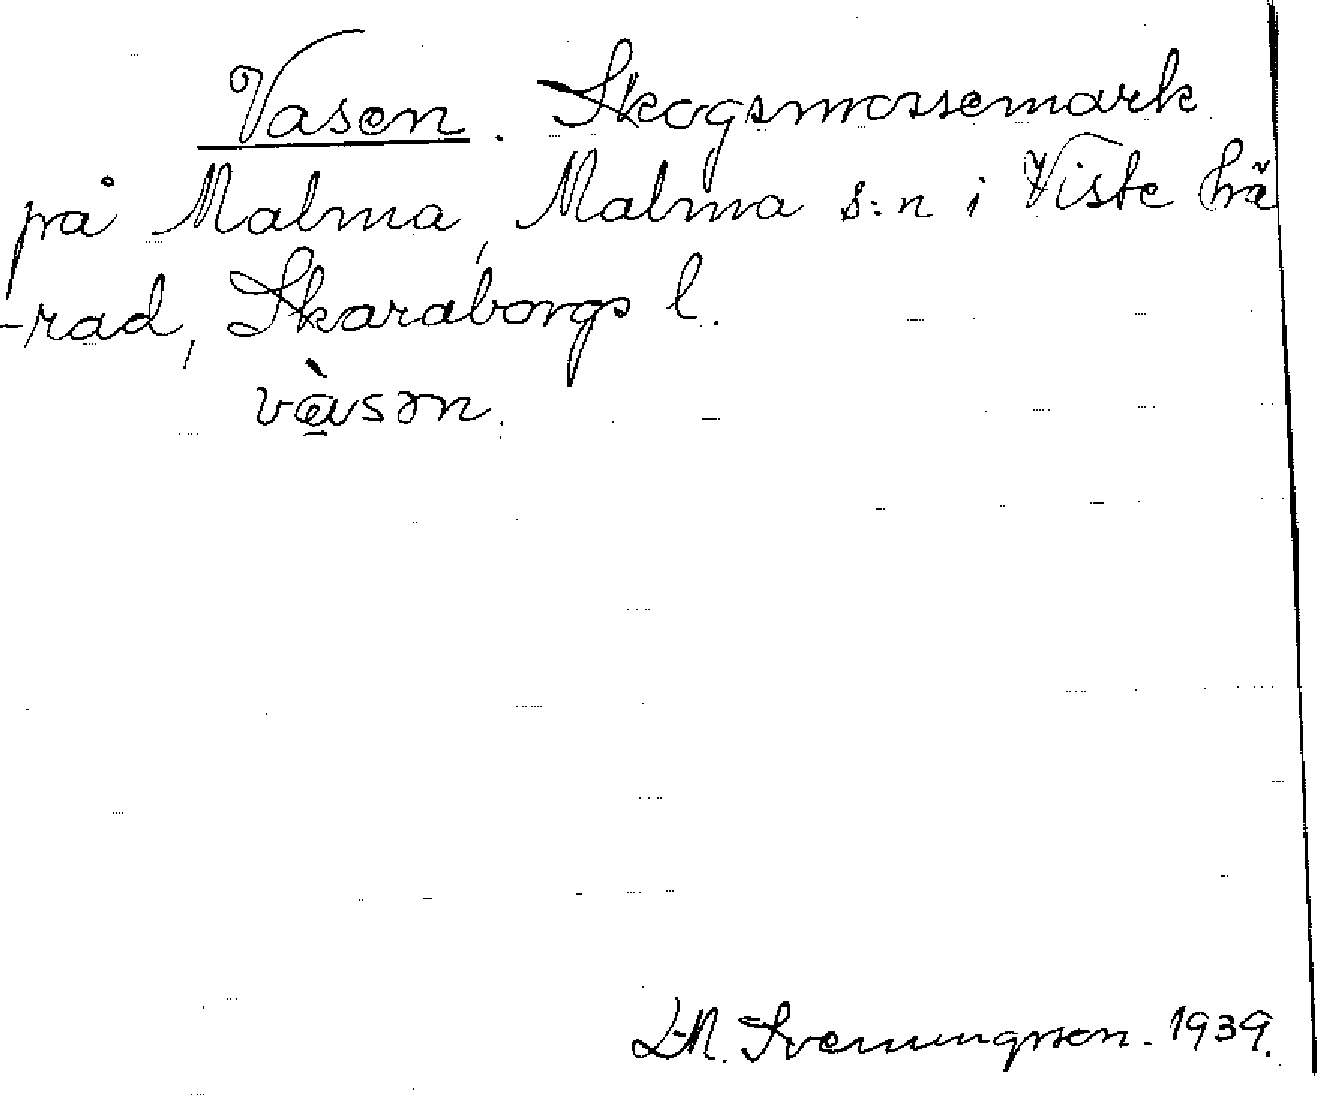 Vasen. Skogsmossemark
på Malma, Malma s:n i Viste hä
-rad, Skaraborgs l.
vàsən.
Svenungsson. 1939.